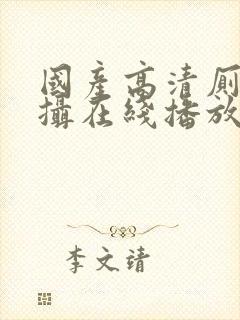 國產高清厠
攝在綫播放
李文靖